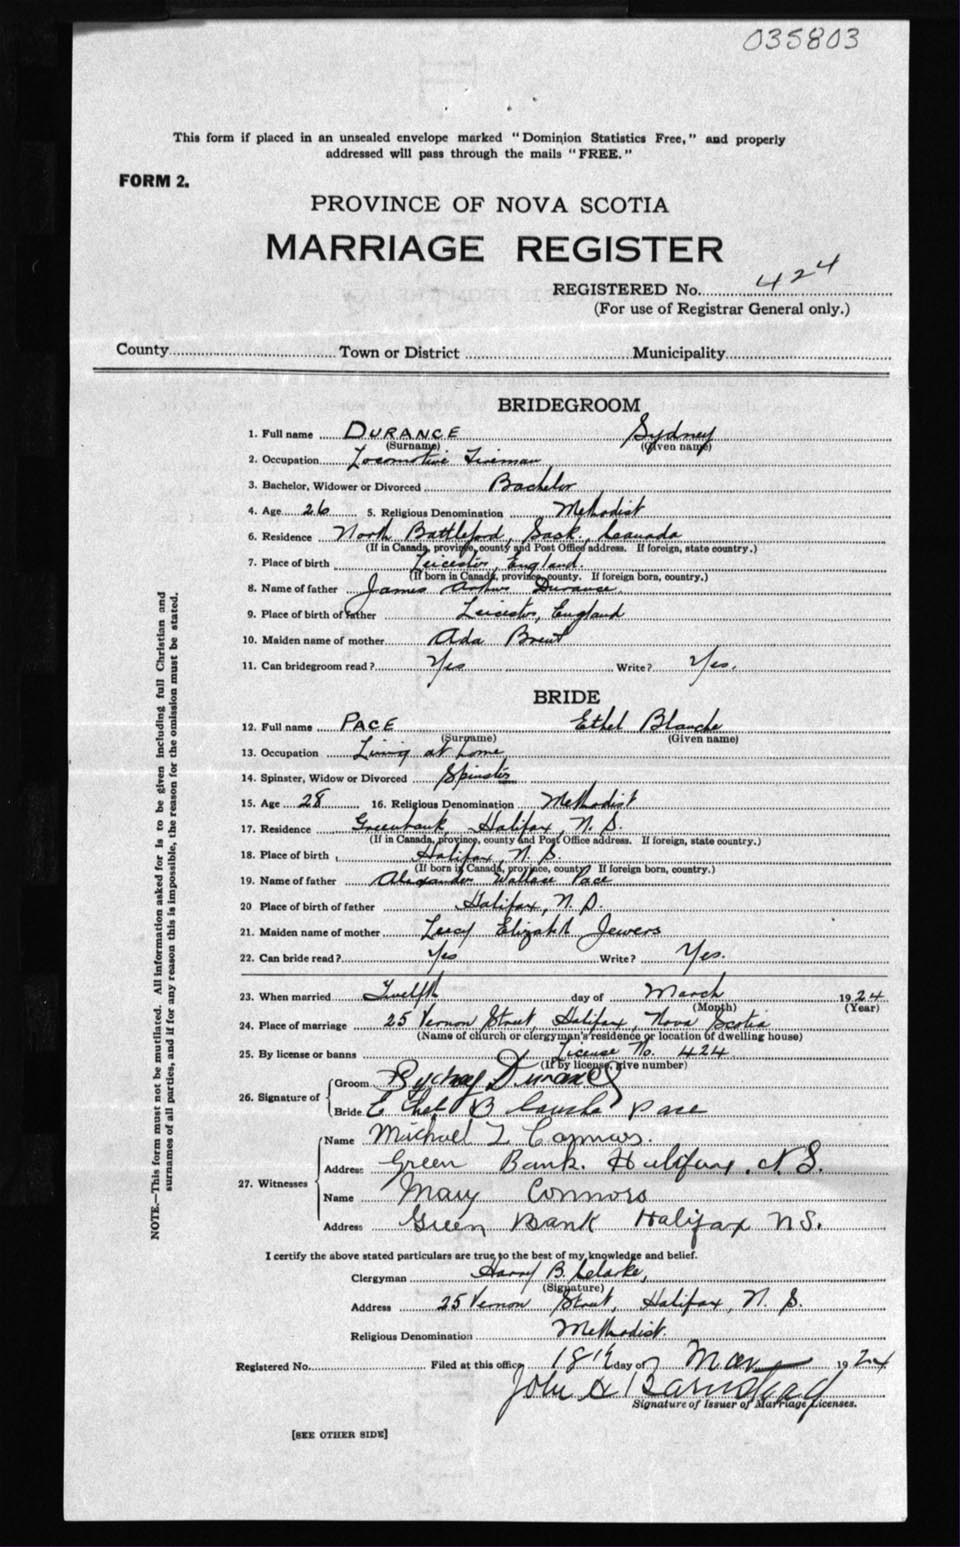 035803
This form if placed in an unsealed envelope marked "Dominion Statistics Free," and properly
addressed will pass through the mails "FREE."
FORM 2.
PROVINCE OF NOVA SCOTIA
MARRIAGE REGISTER
REGISTERED No. 424
(For use of Registrar General only.)
County Town or District Municipality
BRIDEGROOM
1. Full name DURANCE Sydney
(Surname) (Given name)
2. Occupation Locomotive Fireman
3. Bachelor, Widower or Divorced Bachelor
4. Age 26 5. Religious Denomination Methodist
6. Residence North Battleford, Sask, Canada
(If in Canada, province, county and Post Office address. If foreign, state country.)
7. Place of birth Leicester, England.
(If born in Canada, province, county. If foreign born, country.)
8. Name of father James Arthur Durance
9. Place of birth of father Leicester, England
10. Maiden name of mother Ada Brent
11. Can bridegroom read? Yes Write? Yes.
BRIDE
12. Full name PACE Ethel Blanche
(Surname) (Given name)
13. Occupation Living at home
14. Spinster, Widow or Divorced Spinster
15. Age 28 16. Religious Denomination Methodist
17. Residence Greenbank, Halifax, N.S.
(If in Canada, province, county and Post Office address. If foreign, state country.)
18. Place of birth Halifax, N.S.
(If born in Canada, province, county If foreign born, country.)
19. Name of father Alexander Wallace Pace
20 Place of birth of father Halifax, N.S.
21. Maiden name of mother Lucy Elizabeth Jewers
22. Can bride read? Yes Write? Yes.
23. When married Twelfth day of March 1924
(Month) (Year)
24. Place of marriage 25 Vernon Street, Halifax, Nova Scotia
(Name of church or clergyman's residence or location of dwelling house)
25. By license or banns License No. 424
(If by license, give number)
26. Signature of Groom Sydney Durance
Bride Ethel Blanche Pace
27. Witnesses Name Michael Connors.
Address Green Bank. Halifax. N.S.
Name Mary Connors
Address Green Bank Halifax N.S.
I certify the above stated particulars are true to the best of my knowledge and belief.
Clergyman Harry B. Clarke,
(Signature)
Address 25 Vernon Street, Halifax, N.S.
Religious Denomination Methodist.
Registered No. Filed at this office 18th day of Mar 1924
John A Barnstead
Signature of Issuer of Marriage Licenses.
[SEE OTHER SIDE]
NOTE.—This form must not be mutilated. All information asked for is to be given including full Christian and
surnames of all parties, and if for any reason this is impossible, the reason for the omission must be stated.